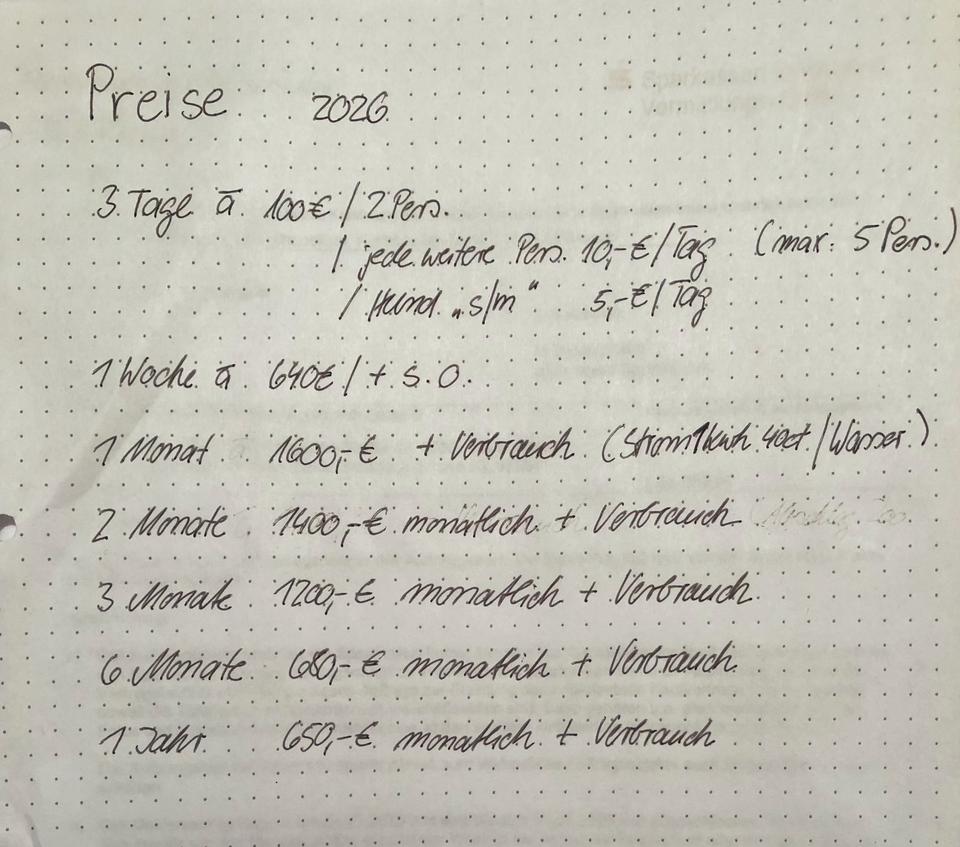 Preise 2026
3 Tage à 100€ / 2 Pers.
/ jede weitere Pers. 10,-€/Tag (max. 5 Pers.)
/ Hund „s/m“ 5,-€/Tag
1 Woche à 640€ / + s.o.
1 Monat 1600,-€ + Verbrauch (Strom 1kwh 40ct/Wasser)
2 Monate 1400,-€ monatlich + Verbrauch
3 Monate 1200,-€ monatlich + Verbrauch
6 Monate 680,-€ monatlich + Verbrauch
1 Jahr 650,-€ monatlich + Verbrauch